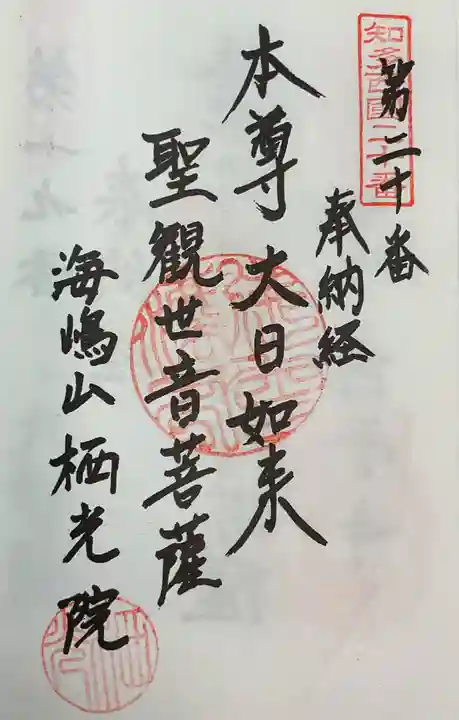 知多西國二十番
第二十番
奉納経
本尊大日如来
聖観世音菩薩
海嶋山栖光院